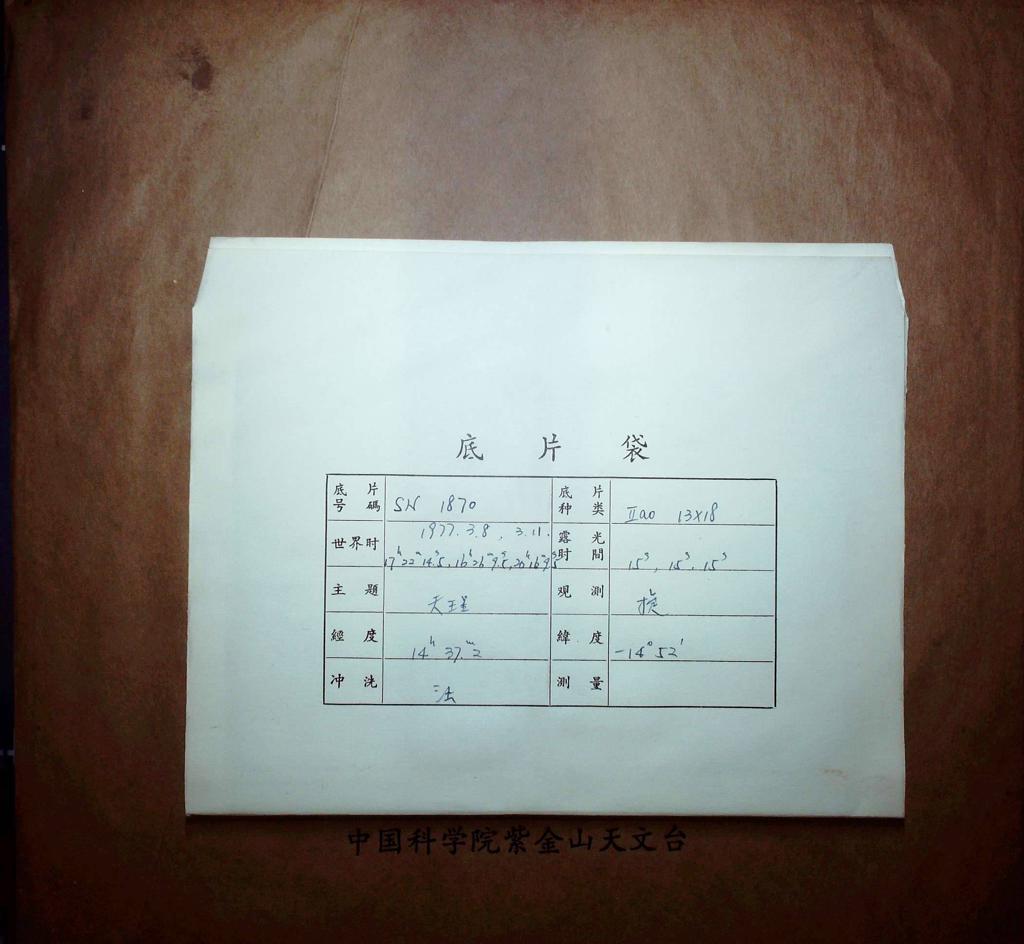 底 片 袋
底片号碼 SN 1870 底片种类 IIao 13×18
世界时 1977.3.8, 3.11. 17ʰ22ᵐ14ˢ.5, 16ʰ26ᵐ9ˢ.5, 20ʰ16ᵐ9ˢ.5 露光时間 15ˢ, 15ˢ, 15ˢ
主題 天王星 观測
經度 14ʰ 37.ᵐ2 緯度 -14°52′
冲洗 測量
中国科学院紫金山天文台